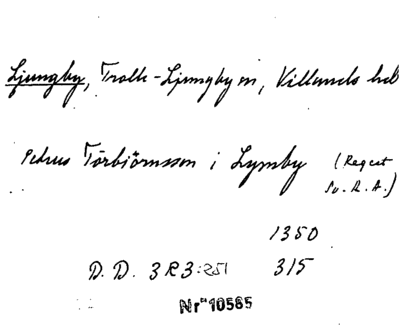 Ljungby, Trolle-Ljungby sn, Villands hd
Petrus Törbiörnsson i Lymby (Regest
Sv. R. A.)
1350
D. D. 3 R 3:251 315
Nr 10565